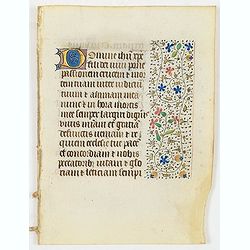 Domine ihu xpe
fili dei uiui pone
passionem crucem et mor
tem tuam inter iudiciū
tuum et animam mea
nunc et in hora mortis
mee semper largiri digne
uiuis miam et gratiā
defunctis ueniam et re
quiem ecclesie tue pacē
et concordiam et nobis
peccatoribus uitam et glo
riam et leticiam sempi